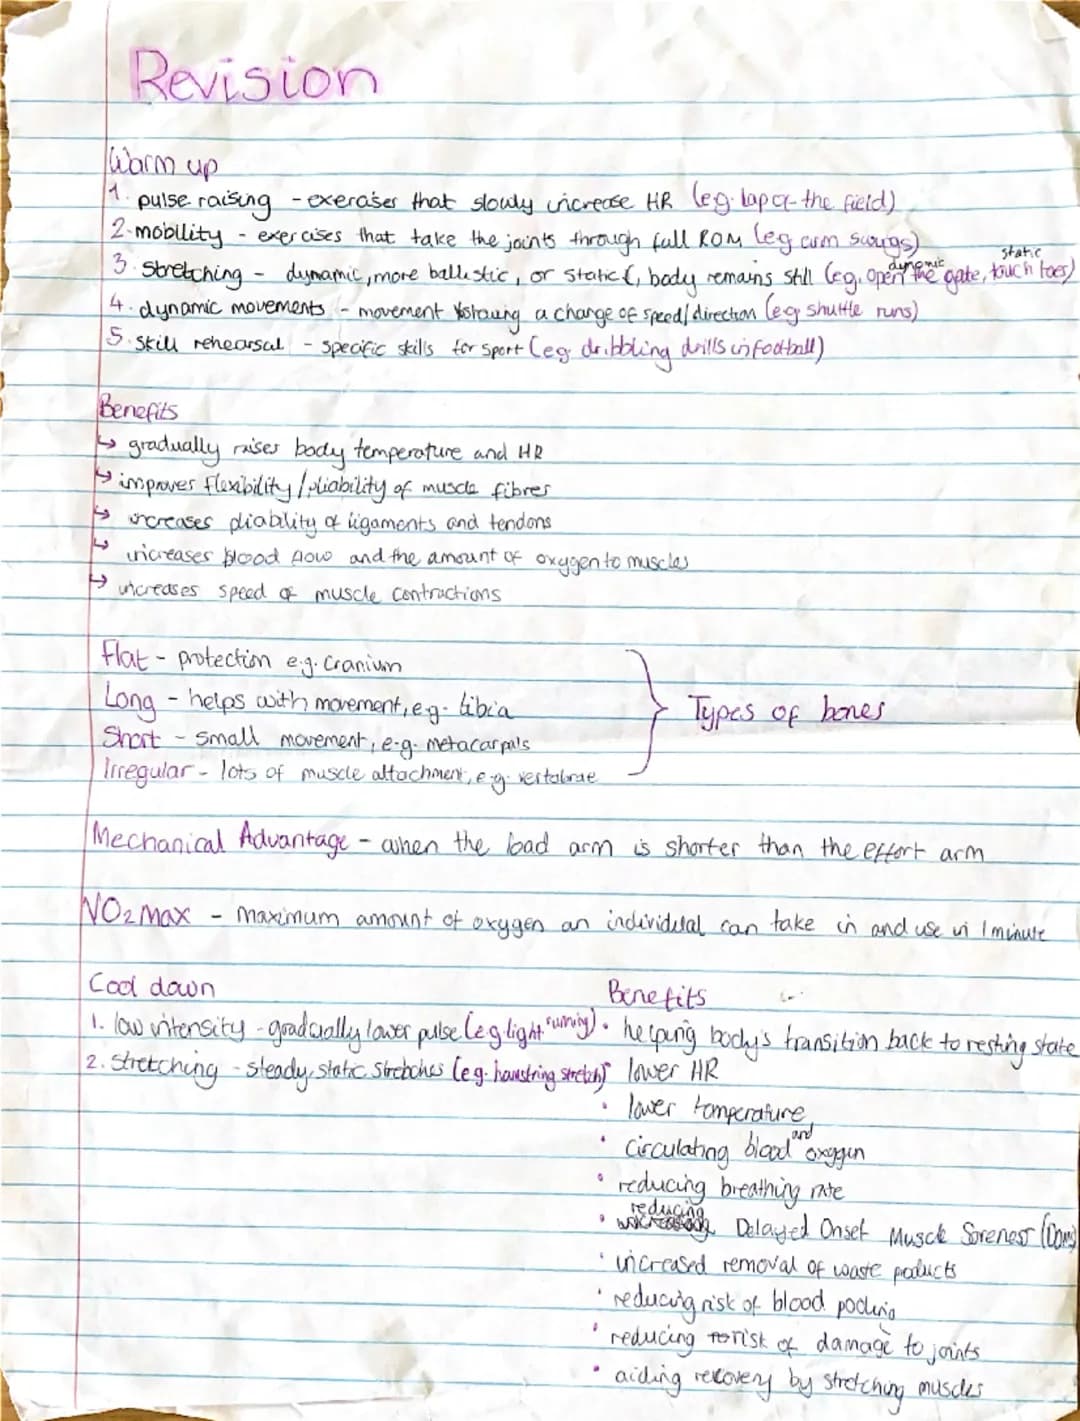 Revision
Warm up
1. pulse raising - exercises that slowly increase HR (eg. lap of the field)
2. mobility - exercises that take the joints through full ROM (eg arm swings)
static
dynamic
3. stretching - dynamic, more ballistic, or static (, body remains still (eg, open the gate, touch toes)
4. dynamic movements - movement showing a change of speed/direction (eg shuttle runs)
5. Skill rehearsal - specific skills for sport (eg. dribbling drills in football)
Benefits
↳ gradually raises body temperature and HR
↳ improves flexibility/pliability of muscle fibres
↳ increases pliability of ligaments and tendons
↳ increases blood flow and the amount of oxygen to muscles
↳ increases speed of muscle contractions
Flat - protection e.g. Cranium
Long - helps with movement, e.g. tibia
Types of bones
Short - small movement, e.g. metacarpals
Irregular - lots of muscle attachment, e.g. vertabrae
Mechanical Advantage - when the load arm is shorter than the effort arm
VO2 MAX - maximum amount of oxygen an individual can take in and use in 1 minute
Cool down
1. low intensity - gradually lower pulse (eg light running)
2. Stretching - steady, static stretches (e.g. hamstring stretch)
Benefits
• helping body's transition back to resting state
• lower HR
• lower temperature
• circulating blood and oxygen
• reducing breathing rate
• reducing Delayed Onset Muscle Soreness (Doms)
• increased removal of waste products
• reducing risk of blood pooling
• reducing risk of damage to joints
• aiding recovery by stretching muscles